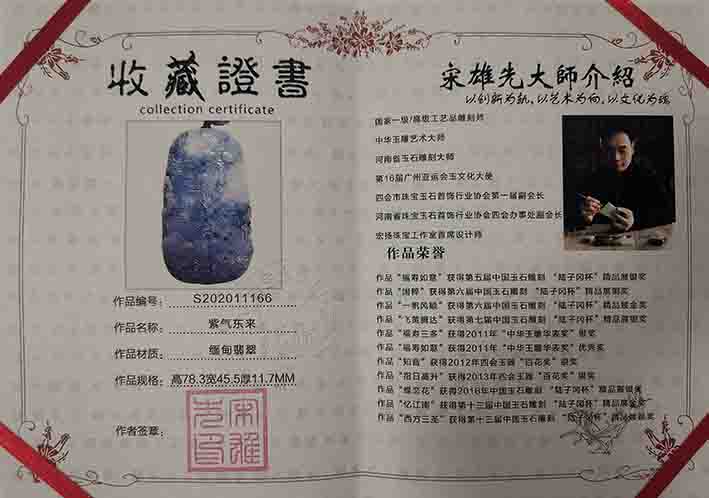 收藏證書
collection certificate
作品编号: S202011166
作品名称: 紫气东来
作品材质: 缅甸翡翠
作品规格: 高78.3宽45.5厚11.7MM
作者签章:
宋雄先大師介紹
以创新为轨,以艺术为向,以文化为魂
国家一级/高级工艺品雕刻师
中华玉雕艺术大师
河南省玉石雕刻大师
第16届广州亚运会玉文化大使
四会市珠宝玉石首饰行业协会第一届副会长
河南省珠宝玉石首饰行业协会四会办事处副会长
宏扬珠宝工作室首席设计师
作品荣誉
作品“福寿如意”获得第五届中国玉石雕刻 “陆子冈杯”精品展银奖
作品“国粹”获得第六届中国玉石雕刻 “陆子冈杯”精品展铜奖
作品“一帆风顺”获得第六届中国玉石雕刻 “陆子冈杯”精品展金奖
作品“飞黄腾达”获得第七届中国玉石雕刻 “陆子冈杯”精品展银奖
作品“福寿三多”获得2011年“中华玉雕华表奖”银奖
作品“福寿如意”获得2011年“中华玉雕华表奖”优秀奖
作品“知音”获得2012年四会玉器“百花奖”银奖
作品“指日高升”获得2013年四会玉器“百花奖”铜奖
作品“蝶恋花”获得2016年中国玉石雕刻 “陆子冈杯”精品展银奖
作品“忆江南”获得第十三届中国玉石雕刻 “陆子冈杯”精品展金奖
作品“西方三圣”获得第十三届中国玉石雕刻 “陆子冈杯”精品展最奖